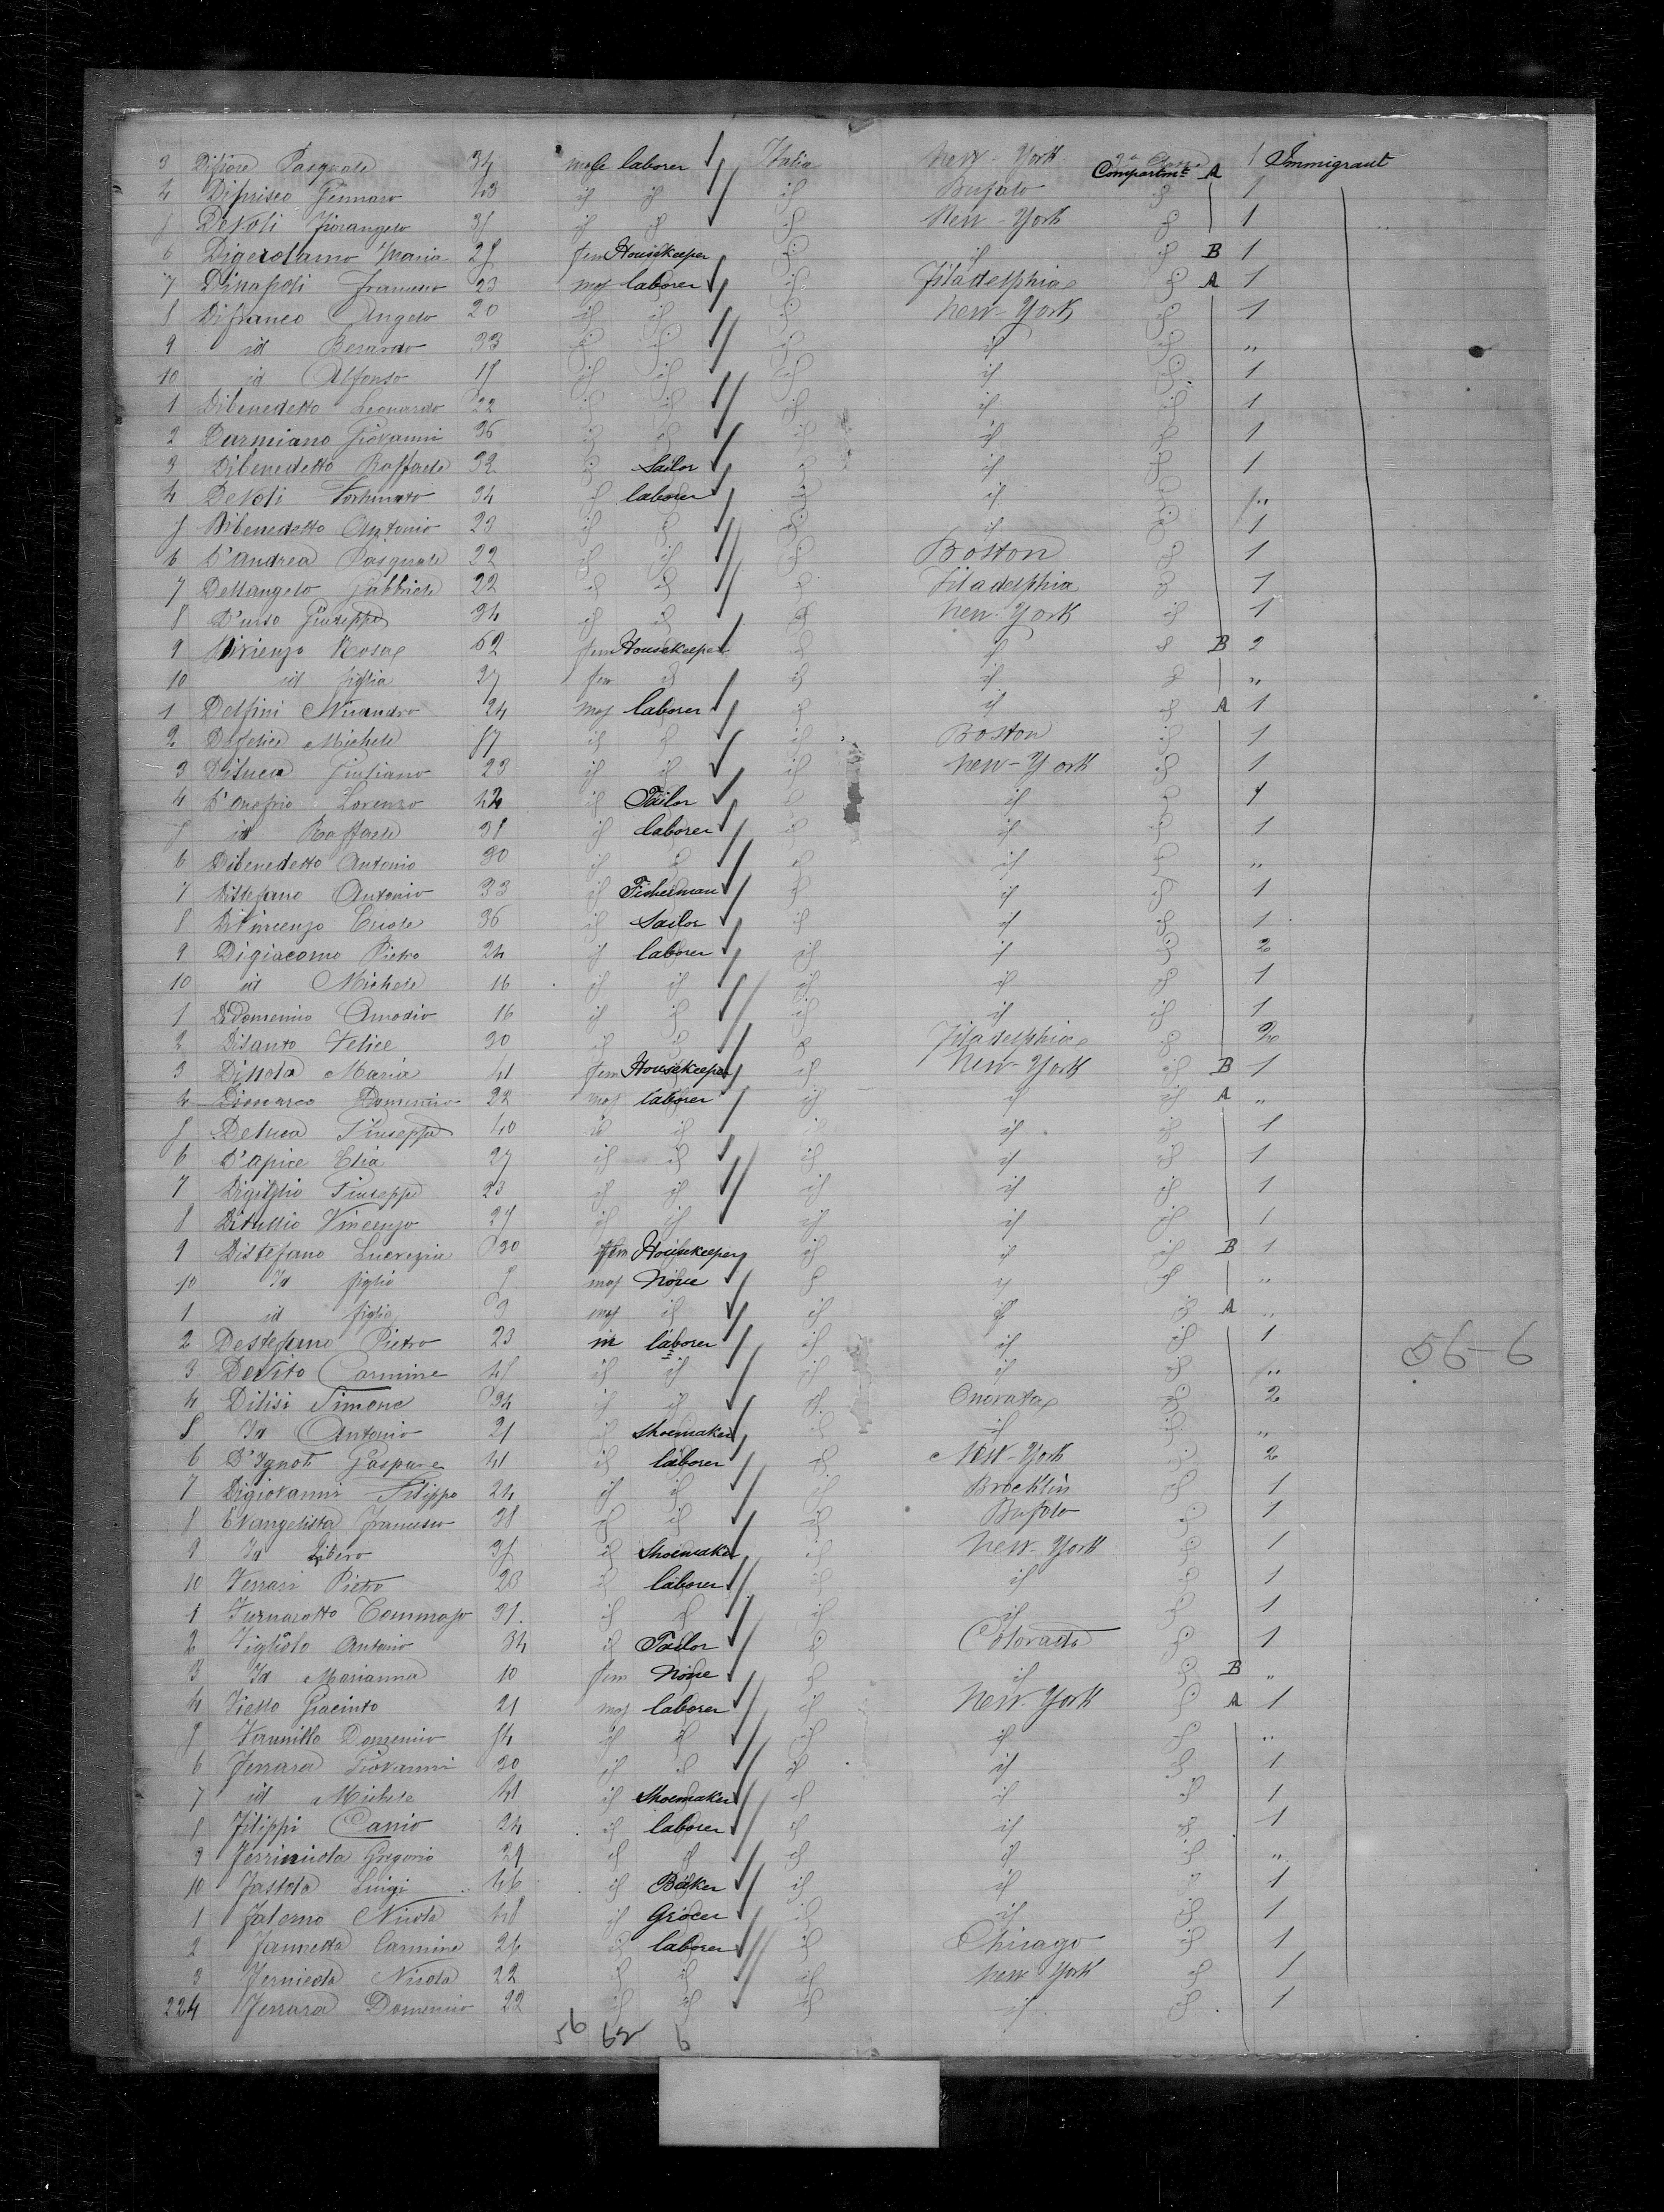 3 Difiore Pasquale 34 male laborer Italia New-York 3a Classe Compartmt A 1 Immigrant
4 Difrisco Gennaro 43 id id id Bufalo id 1
5 DeVoli Fiorangelo 35 id id id New-York id 1
6 Digerolamo Maria 25 fem Housekeeper id id id B 1
7 Dinapoli Francesco 23 mas laborer id Filadelphia id A 1
8 Difranco Angelo 20 id id id New-York id 1
9 id Berardo 33 id id id id id "
10 id Alfonso 15 id id id id id 1
1 Dibenedetto Leonardo 22 id id id id id 1
2 Darmiano Giovanni 36 id id id id id 1
3 Dibenedetto Raffaele 32 id Sailor id id id 1
4 DeVoli Fortunato 34 id laborer id id id "
5 Dibenedetto Antonio 23 id id id id id 1
6 D'andrea Pasquale 22 id id id Boston id 1
7 Dellangelo Gabbriele 22 id id id Filadelphia id 1
8 D'urso Giuseppe 34 id id id New-York id 1
9 Dirienzo Rosa 62 fem Housekeeper id id id B 2
10 id figlia 37 fem id id id id "
1 Delfini Nicandro 24 mas laborer id id id A 1
2 Defelice Michele 57 id id id Boston id 1
3 Diluca Giuliano 23 id id id New-York id 1
4 D'onofrio Lorenzo 42 id Tailor id id id 1
5 id Raffaele 38 id laborer id id id 1
6 Dibenedetto Antonio 30 id id id id id "
7 Distefano Antonio 33 id Fisherman id id id 1
8 DiVincenzo Ercole 36 id Sailor id id id 1
9 Digiacomo Pietro 24 id laborer id id id 2
10 id Michele 16 id id id id id 1
1 Didomenico Amodio 16 id id id id id 1
2 Disanto Felice 30 id id id Filadelphia id 2
3 Maria 41 fem Housekeeper id New-York id B 1
4 Dimarco Domenico 22 mas laborer id id id A "
5 Deluca Giuseppe 40 id id id id id 1
6 D'apice Elia 27 id id id id id 1
7 Digiglio Giuseppe 23 id id id id id 1
8 Ditullio Vincenzo 37 id id id id id 1
9 Distefano Lucrezia 30 fem Housekeeper id id id B 1
10 Id figlio 5 mas None id id id "
1 id figlio 9 mas id id id id A "
2 Destefano Pietro 23 m laborer id id id 1
3 DeVito Carmine 45 id id id id id "
4 Dilisi Simone 34 id id id id 2
5 Id Antonio 21 id Shoemaker id id id "
6 D'Ignoti Gaspare 41 id laborer id New-York id 2
7 Digiovanni Filippo 24 id id id Brocklin id 1
8 Evangelista Francesco 38 id id id Bufalo id 1
9 Id Libero 35 id Shoemaker id New-York id 1
10 Ferrari Pietro 23 id laborer id id id 1
1 Furnarotto Tommaso 31 id id id id id 1
2 Figliolo Antonio 34 id Tailor id Colorado id 1
3 Id Marianna 10 fem None id id id B "
4 Giacinto 21 mas laborer id New-York id A 1
5 Domenico 54 id id id id id "
6 Ferrara Giovanni 30 id id id id id 1
7 id Michele 41 id Shoemaker id id id 1
8 Filippi Canio 24 id laborer id id id 1
9 Ferrinicola Gregorio 29 id id id id id "
10 Fassola Luigi 46 id Baker id id id 1
1 Falerno Nicola 48 id Grocer id id id 1
2 Fannetta Carmine 26 id laborer id Chicago id 1
3 Fernicola Nicola 22 id id id New York id 1
224 Ferrara Domenico 22 id id id id id 1
56 62 6
56-6